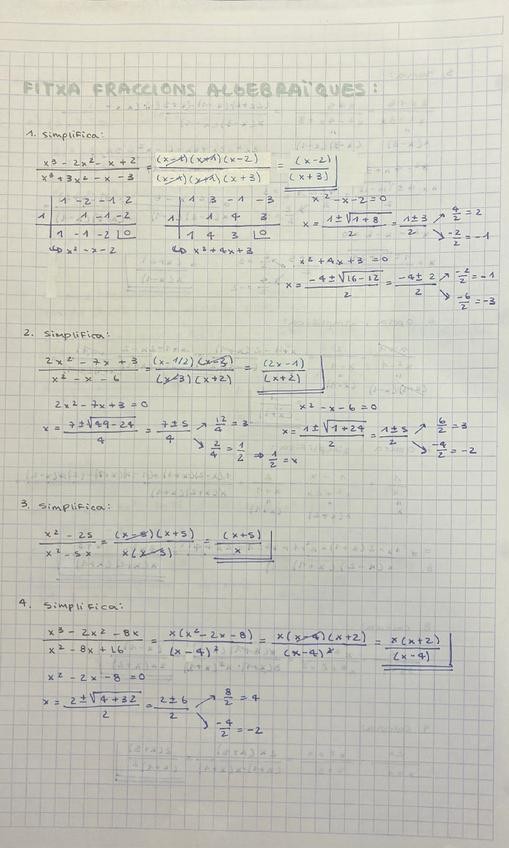 FITXA FRACCIONS ALGEBRAÏQUES:
1. Simplifica:
(x³ - 2x² - x + 2)/(x³ + 3x² - x - 3) = ((x-1)(x+1)(x-2))/((x-1)(x+1)(x+3)) = (x-2)/(x+3)
1 -2 -1 2
1 | 1 -1 -2
1 -1 -2 |0
↳ x² - x - 2
1 3 -1 -3
1 | 1 4 3
1 4 3 |0
↳ x² + 4x + 3
x² - x - 2 = 0
x = (1 ± √(1+8))/2 = (1 ± 3)/2 ↗ 4/2 = 2
↘ -2/2 = -1
x² + 4x + 3 = 0
x = (-4 ± √(16-12))/2 = (-4 ± 2)/2 ↗ -2/2 = -1
↘ -6/2 = -3
2. Simplifica:
(2x² - 7x + 3)/(x² - x - 6) = ((x-1/2)(x-3))/((x-3)(x+2)) = (2x-1)/(x+2)
2x² - 7x + 3 = 0
x = (7 ± √(49-24))/4 = (7 ± 5)/4 ↗ 12/4 = 3
↘ 2/4 = 1/2 ⇒ 1/2 = x
x² - x - 6 = 0
x = (1 ± √(1+24))/2 = (1 ± 5)/2 ↗ 6/2 = 3
↘ -4/2 = -2
3. Simplifica:
(x² - 25)/(x² - 5x) = ((x-5)(x+5))/(x(x-5)) = (x+5)/x
4. Simplifica:
(x³ - 2x² - 8x)/(x² - 8x + 16) = (x(x² - 2x - 8))/((x-4)²) = (x(x-4)(x+2))/((x-4)²) = (x(x+2))/(x-4)
x² - 2x - 8 = 0
x = (2 ± √(4+32))/2 = (2 ± 6)/2 ↗ 8/2 = 4
↘ -4/2 = -2